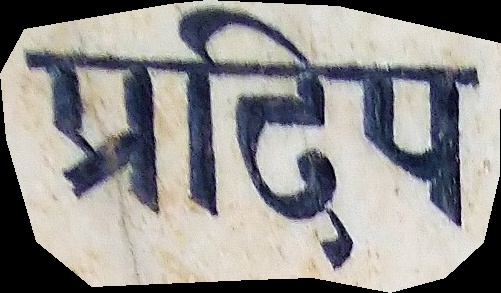 प्रदिप